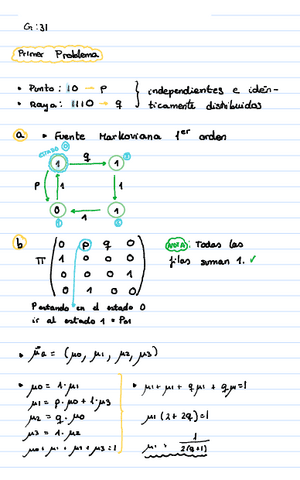 G: 31
Primer Problema
• Punto: 10 → p
• Raya: 1110 → q
independientes e idén-
ticamente distribuidas
a • Fuente Markoviana 1er orden
ESTADO 0
1 q 1
p 1 1
0 1 1
b Π ( 0 p q 0
1 0 0 0
0 0 0 1
0 1 0 0 )
NOTA: Todas las
filas suman 1. ✓
P estando en el estado 0
ir al estado 1 = P01
• μa = (μ0, μ1, μ2, μ3)
• μ0 = 1·μ1
μ1 = p·μ0 + 1·μ3
μ2 = q·μ0
μ3 = 1·μ2
μ0 + μ1 + μ2 + μ3 = 1
• μ1 + μ1 + qμ1 + qμ1 = 1
μ1 (2 + 2q) = 1
μ1 = 1 / 2(q+1)